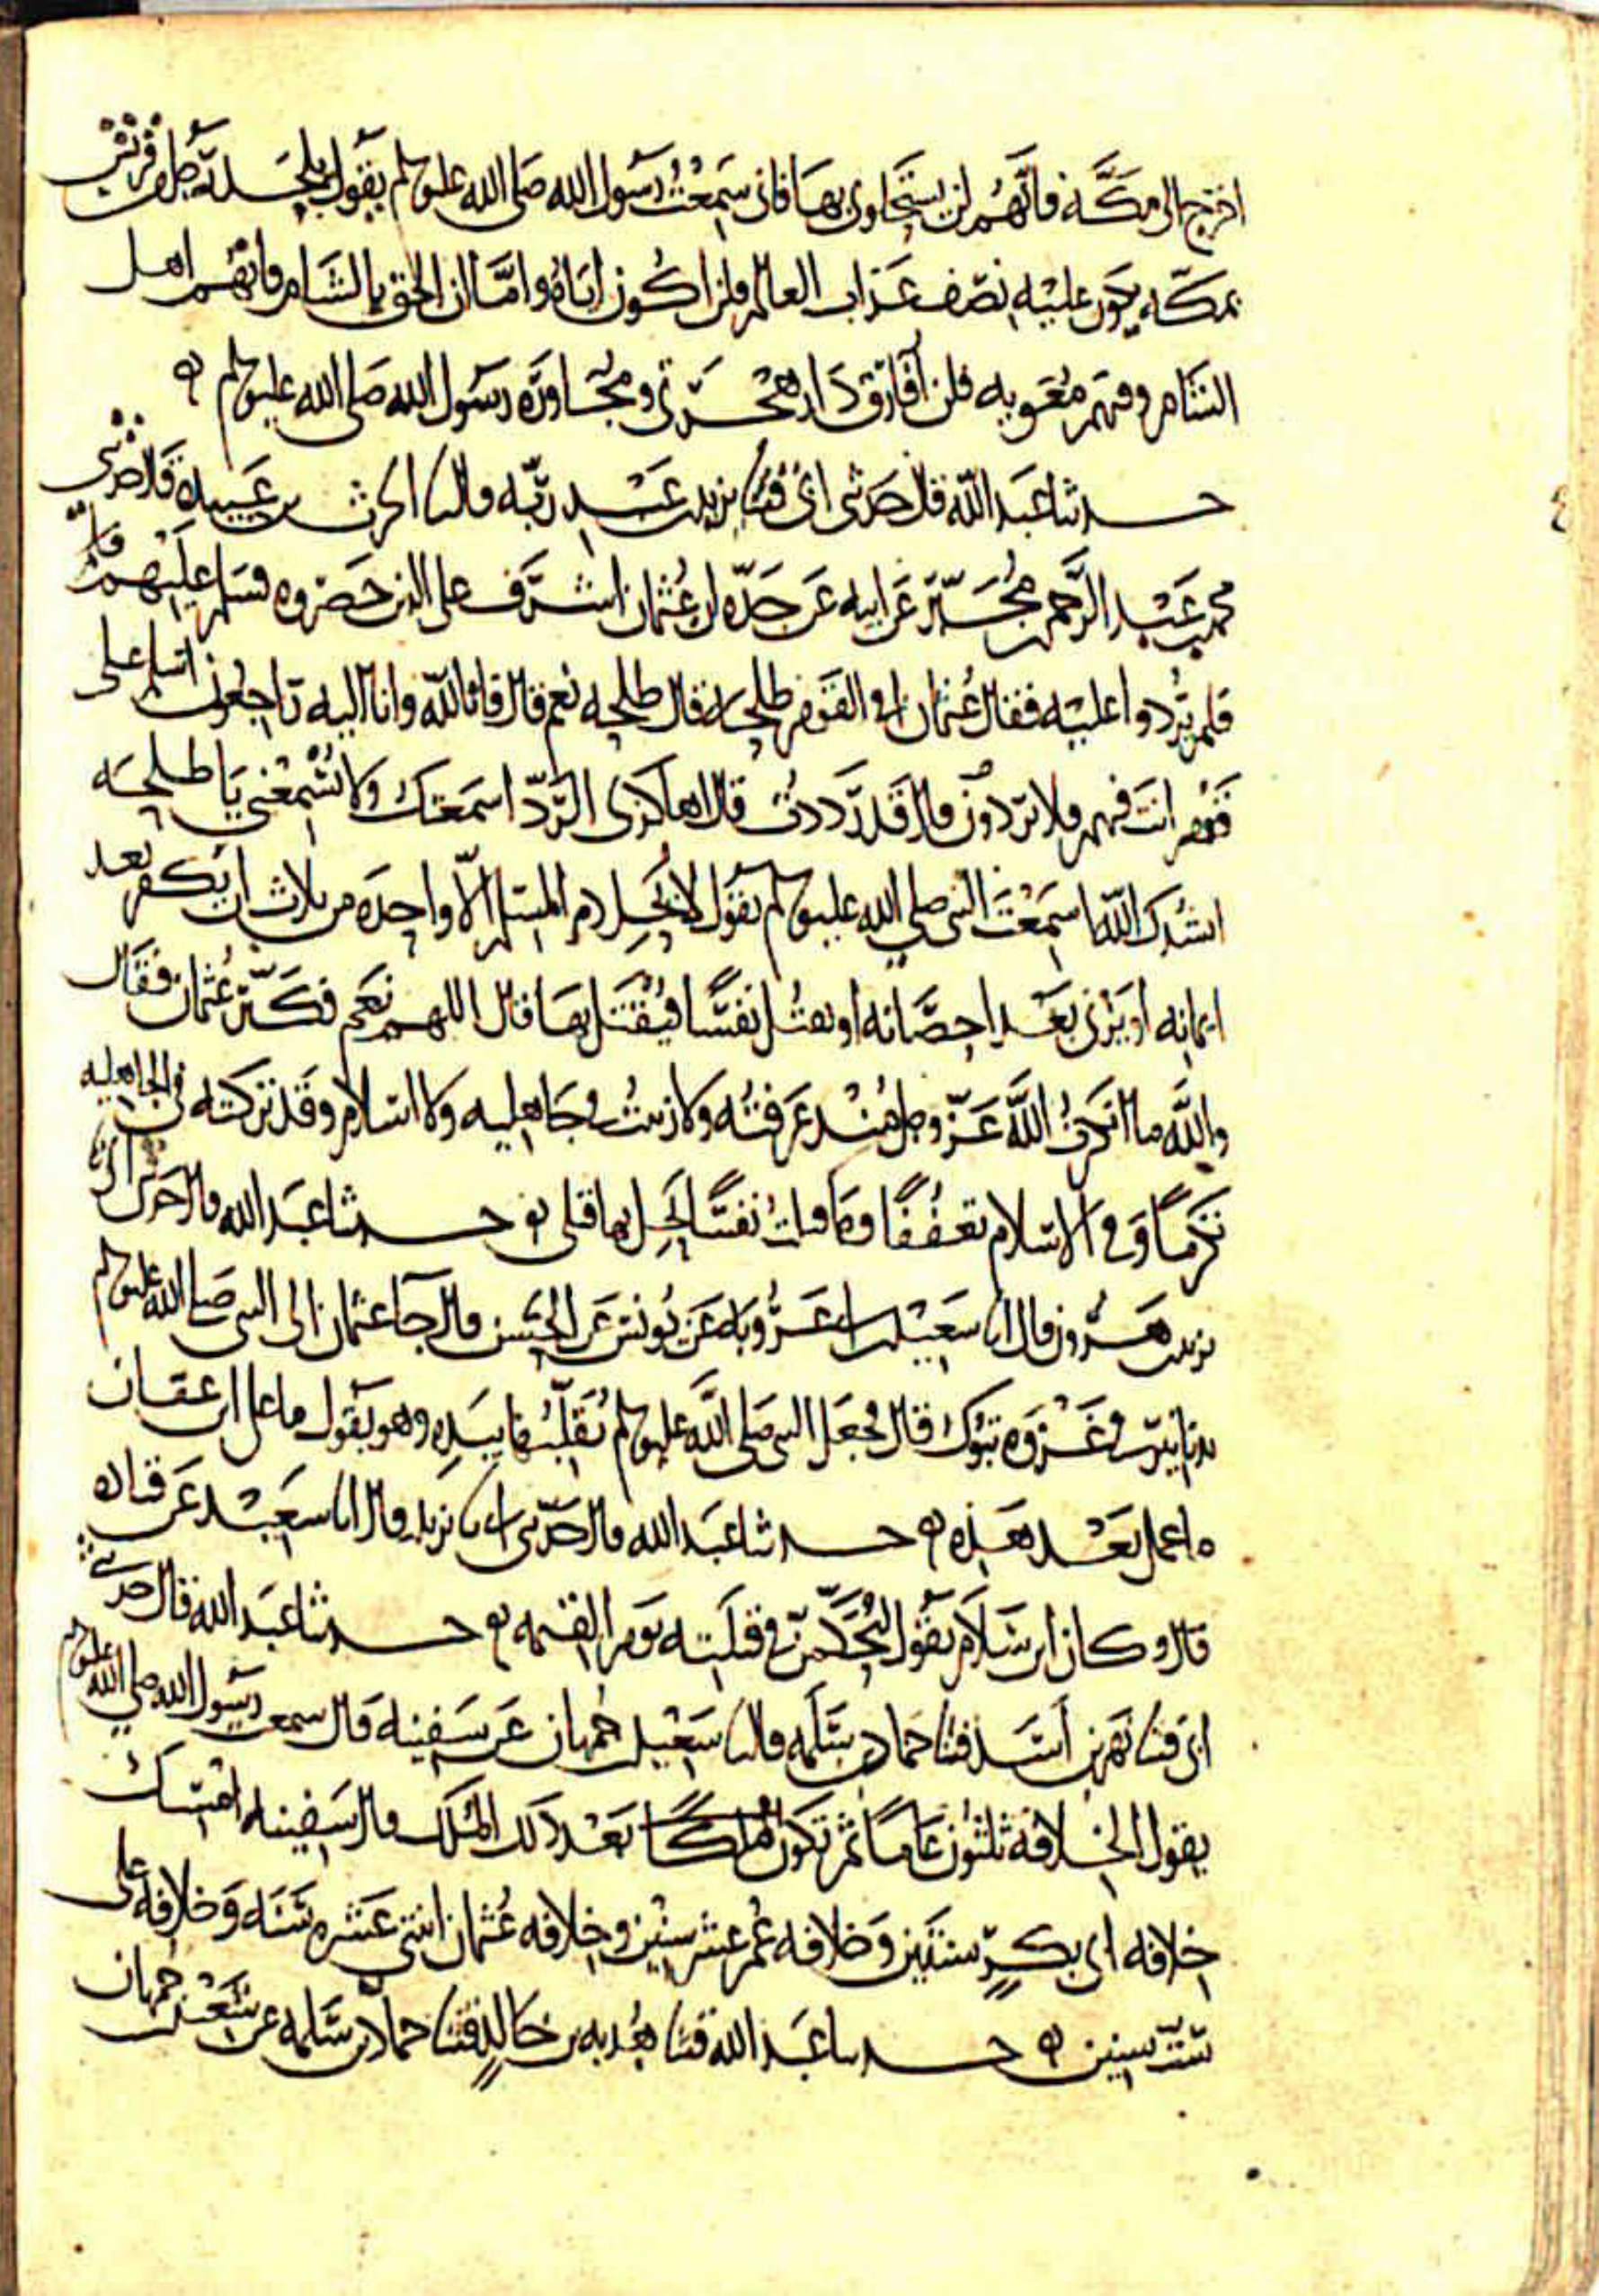 اخرج الى مكة فانهم لن يستحلونى بها فانى سمعت رسول الله صلى الله عليه وسلم يقول يلحد رجل من قريش
بمكة يكون عليه نصف عذاب العالم فلن اكون اياه واما ان الحق بالشام فانهم اهل
الشام وفيهم معويه فلن افارق دار هجرتى ومجاورة رسول الله صلى الله عليه وسلم
حدثنا عبد الله قال حدثنى ابى قثنا يزيد بن عبد ربه قال نا الحرث بن عبيدة قال حدثنى
محمد بن عبد الرحمن بن مجبر عن ابيه عن جده ان عثمان اشرف على الذين حصروه فسلم عليهم
فلم يردوا عليه فقال عثمان افى القوم طلحه قال طلحه نعم قال فانا لله وانا اليه راجعون اسلم على
قوم انت فيهم فلا تردون قال قد رددت قال اهاكذى الرد اسمعتك ولا تسمعنى يا طلحه
انشدك الله اسمعت النبى صلى الله عليه وسلم يقول لا يحل دم المسلم الا واحده من ثلاث ان يكفر بعد
ايمانه او يزنى بعد احصانه او يقتل نفسا فيقتل بها قال اللهم نعم فكبر عثمان فقال
والله ما انكرت الله عز وجل منذ عرفته ولا زنيت فى جاهليه ولا اسلام وقد تركته فى الجاهليه
تكرما وفى الاسلام تعففا وما قتلت نفسا يحل بها قتلى حدثنا عبد الله قال حدثنى ابى نا
يزيد بن هرون قال انا سعيد بن ابى عروبه عن يونس عن الحسن قال جا عثمان الى النبى صلى الله عليه وسلم
بدنانير فى غزوه تبوك قال فجعل النبى صلى الله عليه وسلم يقلبها بيده وهو يقول ما على ابن عفان
ما عمل بعد هذه حدثنا عبد الله قال حدثنى ابى نا يزيد قال انا سعيد عن قتاده
قال وكان ابن سلام يقول ليحكمن فى قتلته يوم القيمه حدثنا عبد الله قال حدثنى
ابى قثنا بهز بن اسد قثنا حماد بن سلمه قال نا سعيد بن جمهان عن سفينه قال سمعت رسول الله صلى الله عليه وسلم
يقول الخلافة ثلثون عاما ثم تكون ملكا بعد ذلك الملك قال سفينه امسك
خلافه ابى بكر سنتين وخلافه عمر عشر سنين وخلافه عثمان اثنتى عشره سنه وخلافه على
ست سنين حدثنا عبد الله قثنا هدبه بن خالد قثنا حماد بن سلمه عن سعيد بن جمهان